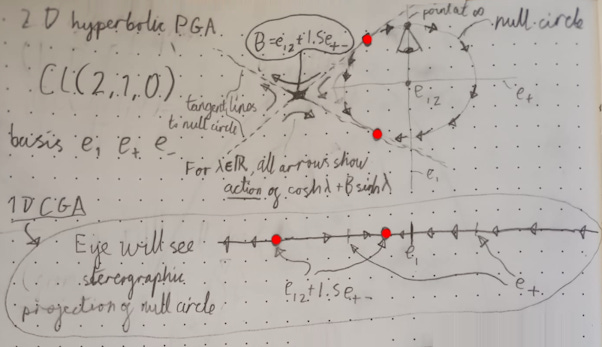 2D hyperbolic PGA
Cl(2,1,0)
basis e₁ e₊ e₋
B=e₁₂+1.5e₊₋
point at ∞
null circle
e₁₂
e₊
e₁
tangent lines
to null circle
For λ∈ℝ, all arrows show
action of cosh λ + B sinh λ
1D CGA
Eye will see
sterergraphic
projection of null circle
e₁
e₁₂+1.5e₊₋
e₊